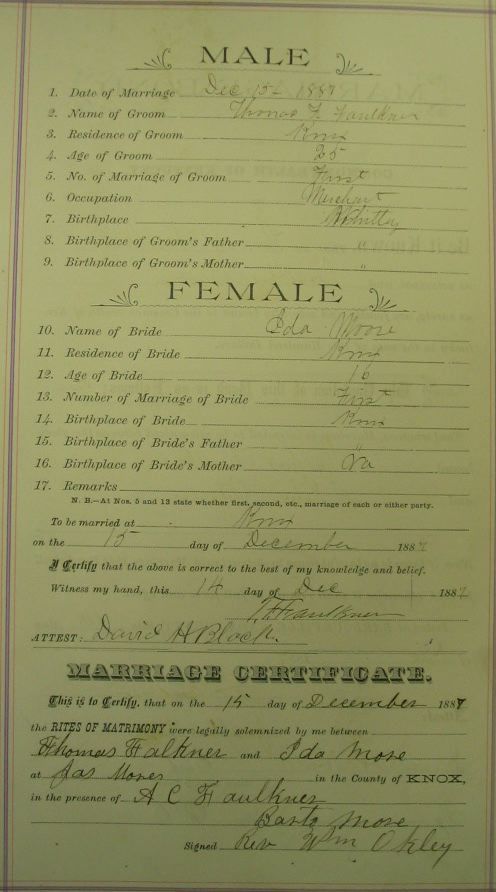 MALE
1. Date of Marriage Dec 15th 1887
2. Name of Groom Thomas F. Faulkner
3. Residence of Groom Knox
4. Age of Groom 25
5. No. of Marriage of Groom First
6. Occupation Merchant
7. Birthplace Whitley
8. Birthplace of Groom's Father "
9. Birthplace of Groom's Mother "
FEMALE
10. Name of Bride Ida Moore
11. Residence of Bride Knox
12. Age of Bride 16
13. Number of Marriage of Bride First
14. Birthplace of Bride Knox
15. Birthplace of Bride's Father "
16. Birthplace of Bride's Mother Va
17. Remarks
N. B.—At Nos. 5 and 13 state whether first, second, etc., marriage of each or either party.
To be married at Knox
on the 15 day of December 1887
I Certify that the above is correct to the best of my knowledge and belief.
Witness my hand, this 14 day of Dec 1887
Faulkner
ATTEST: David H Black.
MARRIAGE CERTIFICATE.
This is to Certify, that on the 15 day of December 1887
the RITES OF MATRIMONY were legally solemnized by me between
Thomas Falkner and Ida More
at Jas Mores in the County of KNOX,
in the presence of A C Faulkner
Barto More
Signed Rev Wm Okley